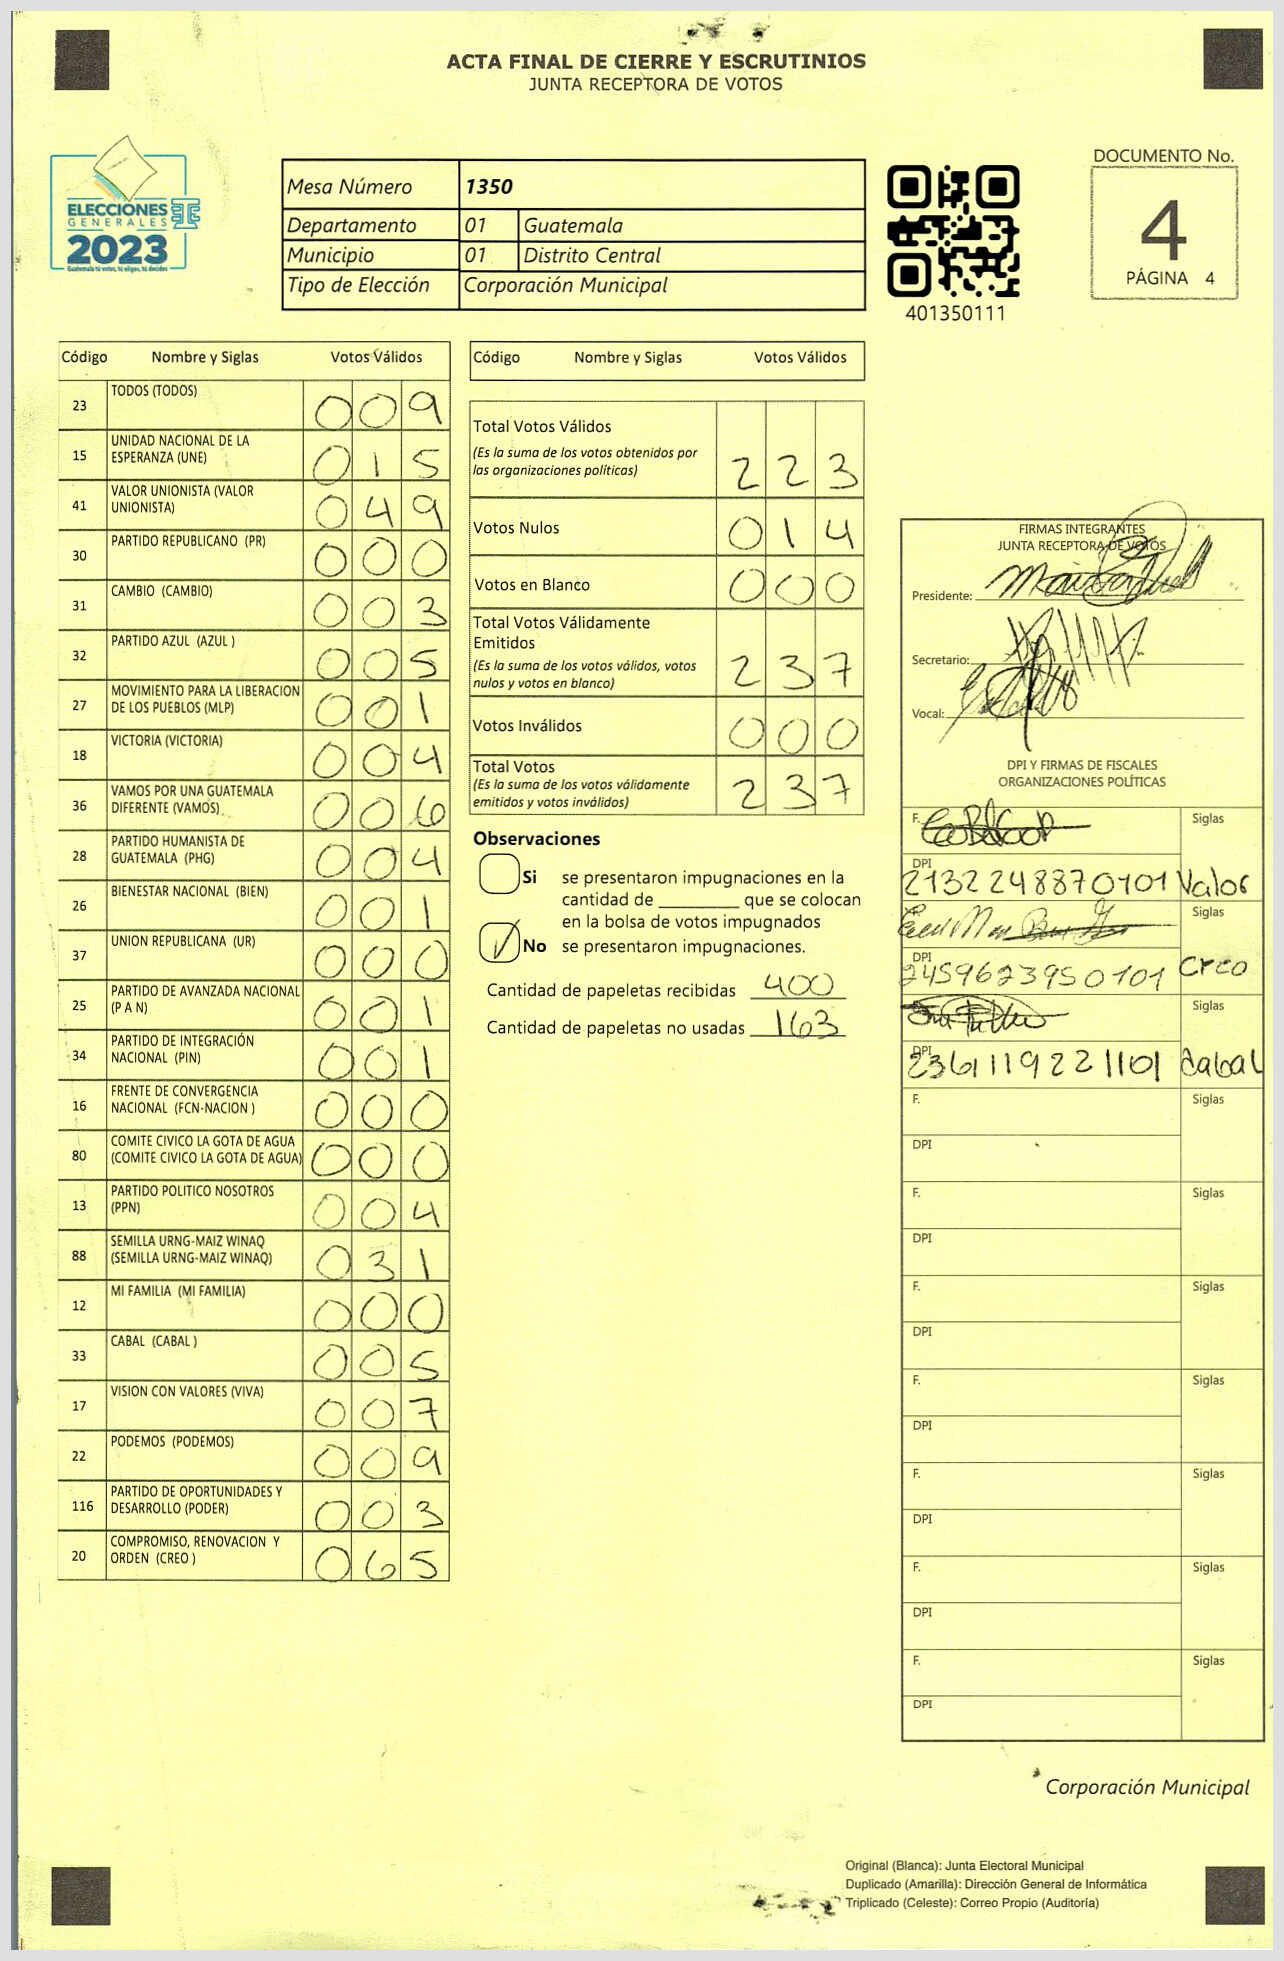 ACTA FINAL DE CIERRE Y ESCRUTINIOS
JUNTA RECEPTORA DE VOTOS
ELECCIONES
GENERALES
2023
Guatemala tú votas, tú eliges, tú decides
Mesa Número 1350
Departamento 01 Guatemala
Municipio 01 Distrito Central
Tipo de Elección Corporación Municipal
401350111
DOCUMENTO No.
4
PÁGINA 4
Código Nombre y Siglas Votos Válidos
23 TODOS (TODOS) 009
15 UNIDAD NACIONAL DE LA
ESPERANZA (UNE) 015
41 VALOR UNIONISTA (VALOR
UNIONISTA) 049
30 PARTIDO REPUBLICANO (PR) 000
31 CAMBIO (CAMBIO) 003
32 PARTIDO AZUL (AZUL ) 005
27 MOVIMIENTO PARA LA LIBERACION
DE LOS PUEBLOS (MLP) 001
18 VICTORIA (VICTORIA) 004
36 VAMOS POR UNA GUATEMALA
DIFERENTE (VAMOS) 006
28 PARTIDO HUMANISTA DE
GUATEMALA (PHG) 004
26 BIENESTAR NACIONAL (BIEN) 001
37 UNION REPUBLICANA (UR) 000
25 PARTIDO DE AVANZADA NACIONAL
(P A N) 001
34 PARTIDO DE INTEGRACIÓN
NACIONAL (PIN) 001
16 FRENTE DE CONVERGENCIA
NACIONAL (FCN-NACION ) 000
80 COMITE CIVICO LA GOTA DE AGUA
(COMITE CIVICO LA GOTA DE AGUA) 000
13 PARTIDO POLITICO NOSOTROS
(PPN) 004
88 SEMILLA URNG-MAIZ WINAQ
(SEMILLA URNG-MAIZ WINAQ) 031
12 MI FAMILIA (MI FAMILIA) 000
33 CABAL (CABAL ) 005
17 VISION CON VALORES (VIVA) 007
22 PODEMOS (PODEMOS) 009
116 PARTIDO DE OPORTUNIDADES Y
DESARROLLO (PODER) 003
20 COMPROMISO, RENOVACION Y
ORDEN (CREO ) 065
Código Nombre y Siglas Votos Válidos
Total Votos Válidos
(Es la suma de los votos obtenidos por
las organizaciones políticas) 223
Votos Nulos 014
Votos en Blanco 000
Total Votos Válidamente
Emitidos
(Es la suma de los votos válidos, votos
nulos y votos en blanco) 237
Votos Inválidos 000
Total Votos
(Es la suma de los votos válidamente
emitidos y votos inválidos) 237
Observaciones
Si se presentaron impugnaciones en la
cantidad de ________ que se colocan
en la bolsa de votos impugnados
No se presentaron impugnaciones.
Cantidad de papeletas recibidas 400
Cantidad de papeletas no usadas 163
FIRMAS INTEGRANTES
JUNTA RECEPTORA DE VOTOS
Presidente:
Secretario:
Vocal:
DPI Y FIRMAS DE FISCALES
ORGANIZACIONES POLÍTICAS
F. Siglas
DPI
2132248870101 Valor
Siglas
DPI
2459623950101 Creo
Siglas
DPI
2361119221101 Cabal
F. Siglas
DPI
F. Siglas
DPI
F. Siglas
DPI
F. Siglas
DPI
F. Siglas
DPI
F. Siglas
DPI
F. Siglas
DPI
Corporación Municipal
Original (Blanca): Junta Electoral Municipal
Duplicado (Amarilla): Dirección General de Informática
Triplicado (Celeste): Correo Propio (Auditoría)